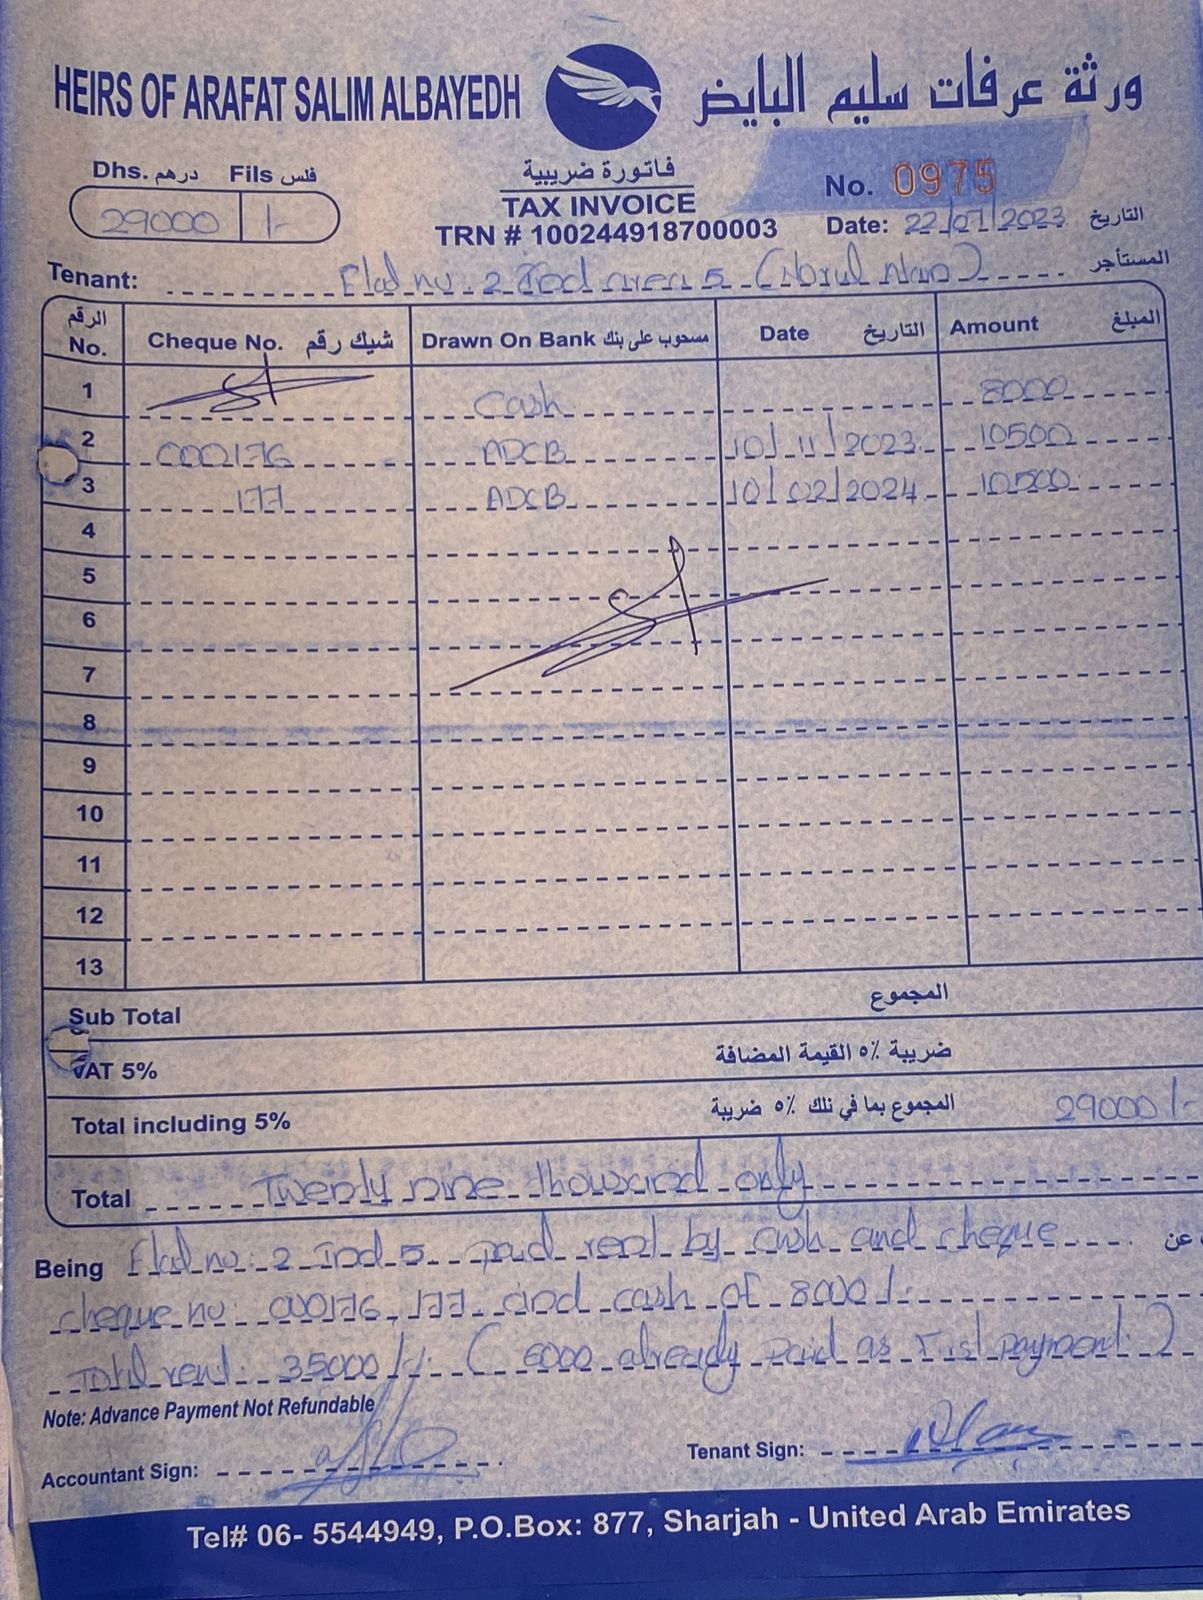 HEIRS OF ARAFAT SALIM ALBAYEDH ورثة عرفات سليم البايض
Dhs. درهم Fils فلس
29000 /-
فاتورة ضريبية
TAX INVOICE
TRN # 100244918700003
No. 0975
Date: 22/07/2023 التاريخ
Tenant: Flat no. 2 Ind area 5 المستأجر
الرقم No. Cheque No. شيك رقم Drawn On Bank مسحوب على بنك Date التاريخ Amount المبلغ
1 Cash 8000
2 000176 ADCB 10/11/2023 10500
3 177 ADCB 10/02/2024 10500
4
5
6
7
8
9
10
11
12
13
Sub Total المجموع
VAT 5% ضريبة ٥٪ القيمة المضافة
Total including 5% المجموع بما في ذلك ٥٪ ضريبة 29000/-
Total Twenty nine thousand only
Being Flat no: 2 Ind 5 paid rent by cash and cheque عن
cheque no: 000176, 177 and cash of 8000/-
Total rent: 35000/- (6000 already paid as first payment.)
Note: Advance Payment Not Refundable
Accountant Sign: Tenant Sign:
Tel# 06- 5544949, P.O.Box: 877, Sharjah - United Arab Emirates